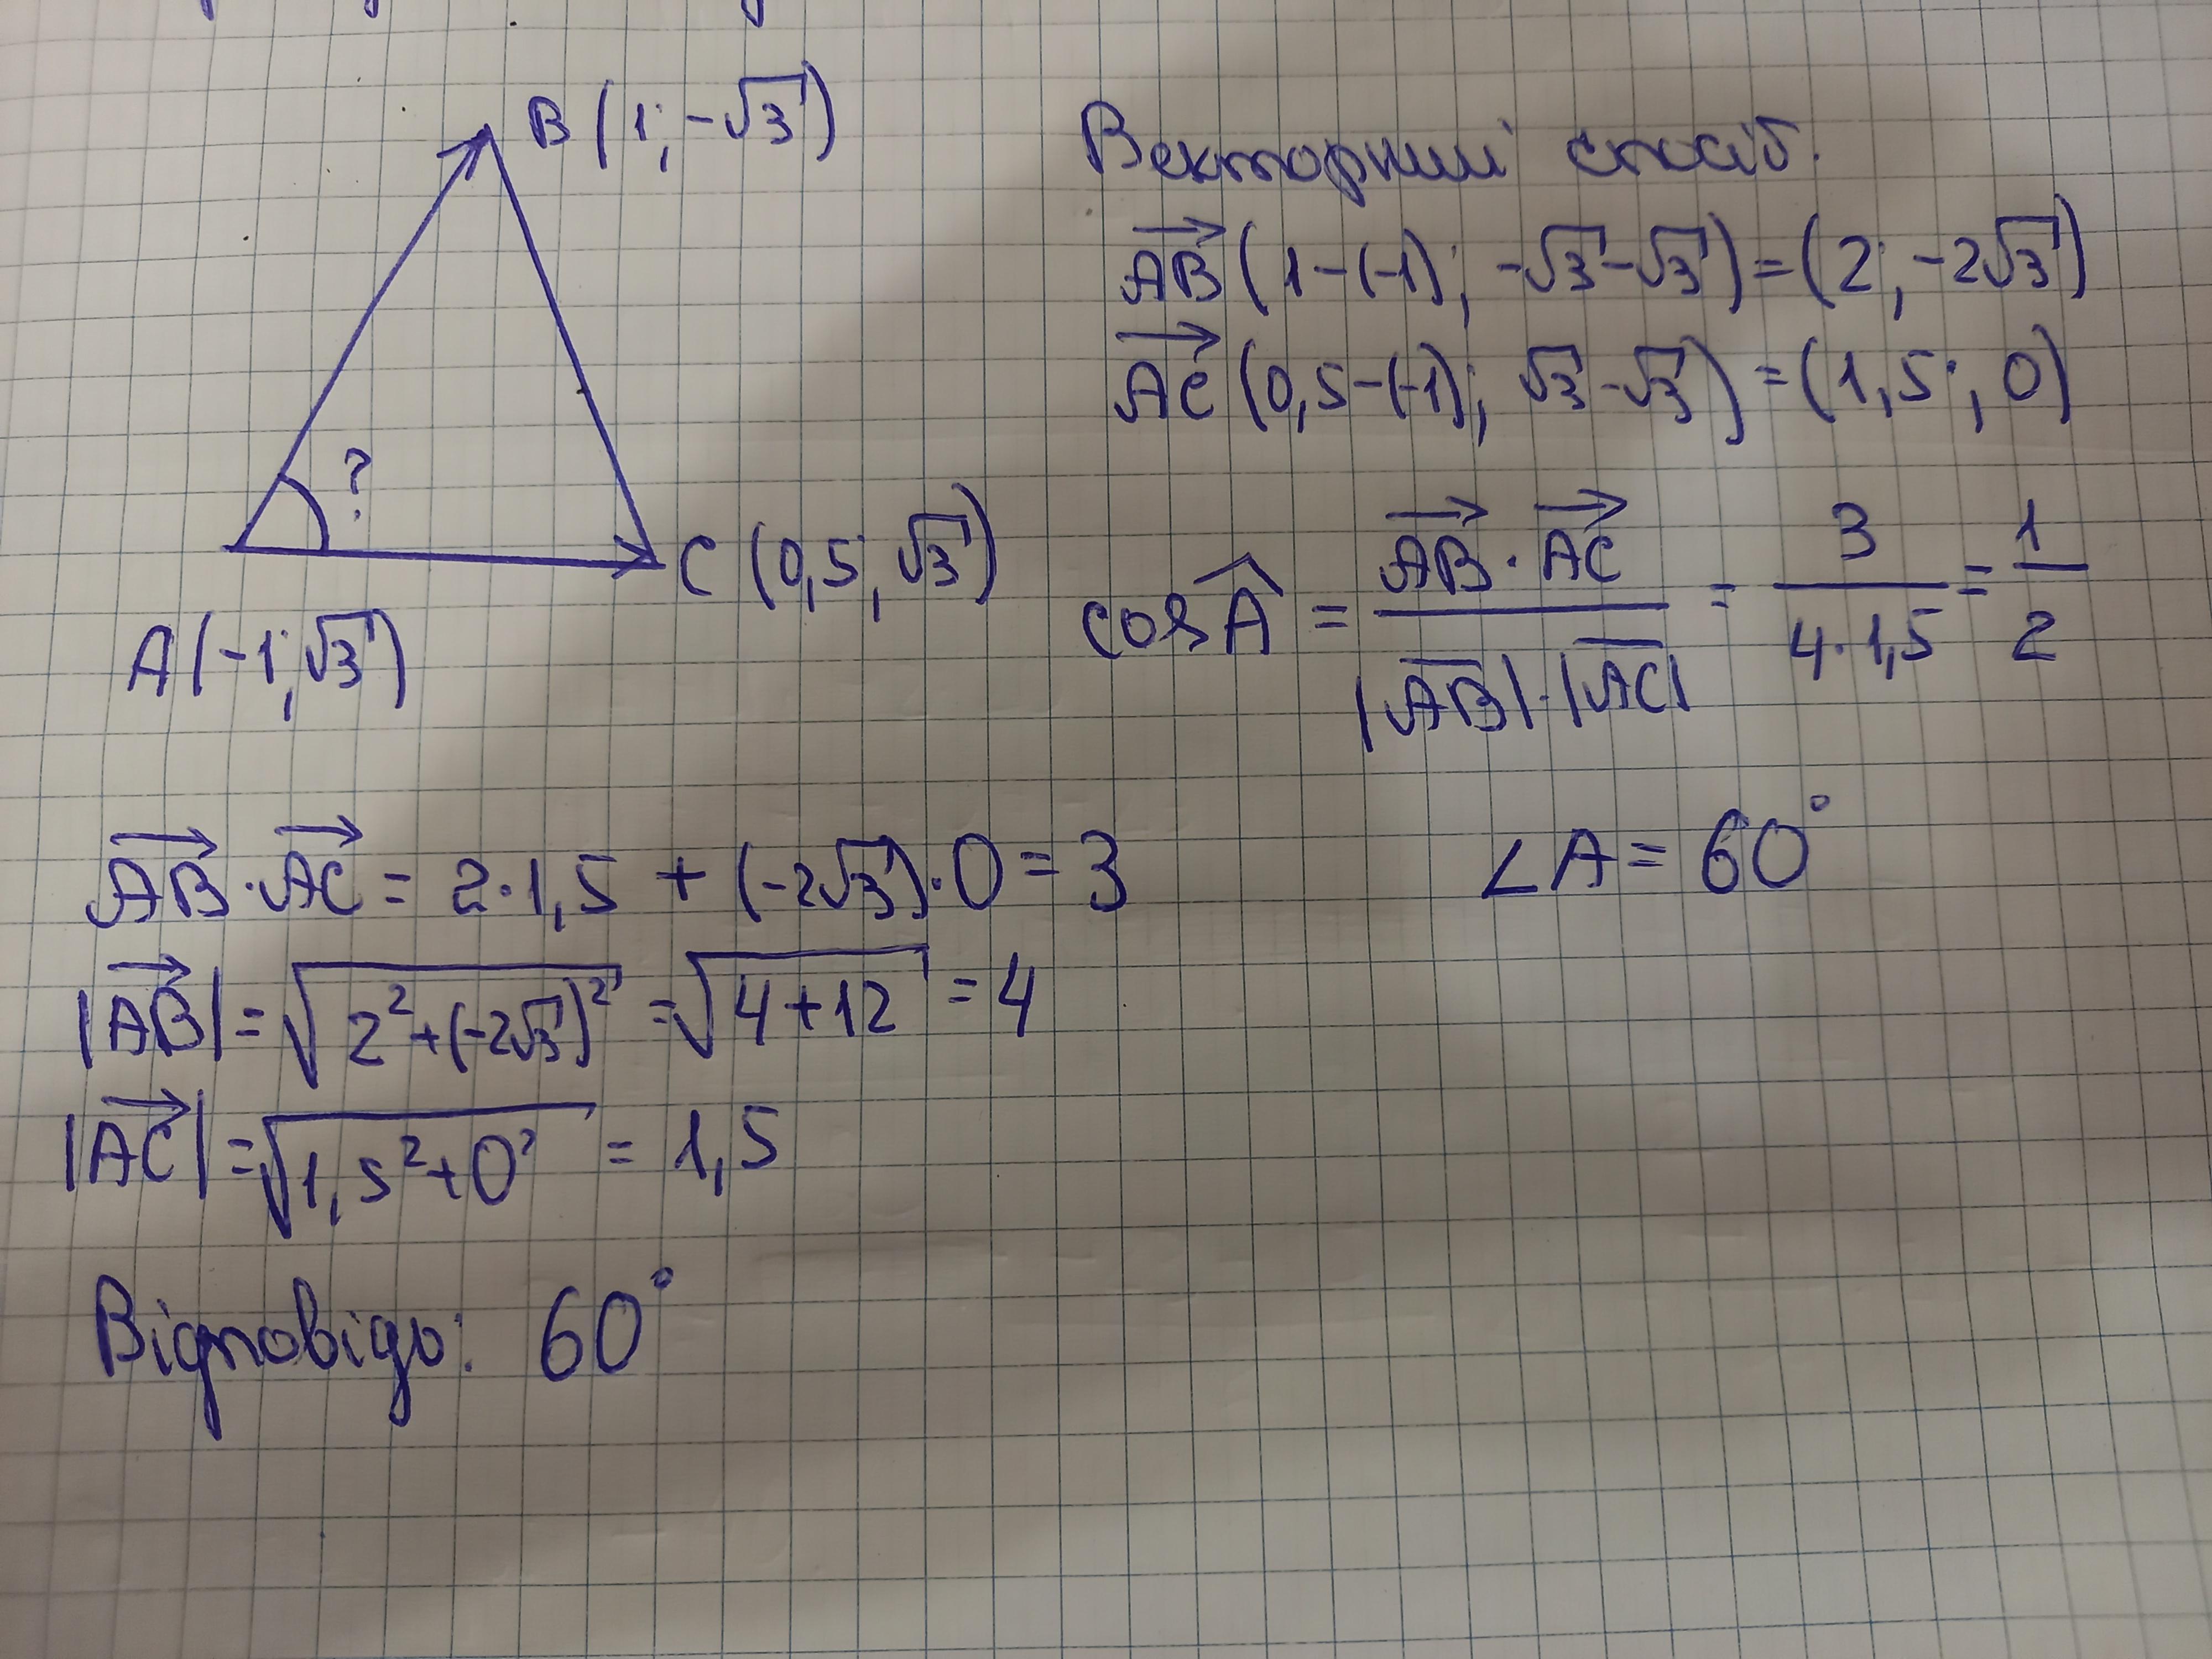 B (1; -√3)
Векторний спосіб.
AB (1-(-1); -√3-√3) = (2; -2√3)
AC (0,5-(-1); √3-√3) = (1,5; 0)
?
C (0,5; √3)
A (-1; √3)
cos A = AB · AC / |AB| · |AC| = 3 / 4·1,5 = 1 / 2
AB · AC = 2·1,5 + (-2√3)·0 = 3
∠A = 60°
|AB| = √2²+(-2√3)² = √4+12 = 4
|AC| = √1,5²+0² = 1,5
Відповідь: 60°